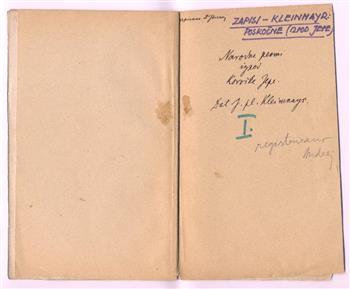 ZAPISI - KLEINMAYR:
POSKOČNE (IZPOD JEPE)
Narodne pesmi
izpod
Koroške Jepe.
Dal J. pl. Kleinmayr.
I.
registrirano
Andrej